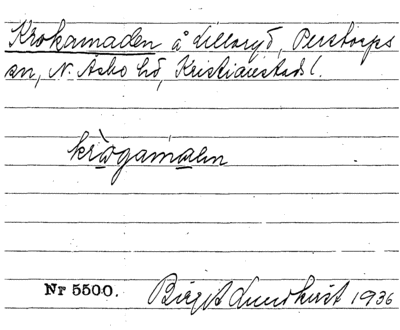 Krokamaden å Lillaryd, Perstorps
sn, N. Åsbo hd, Kristianstads l.
krògamàen
Nr 5500. Birgit Lundkvist 1936